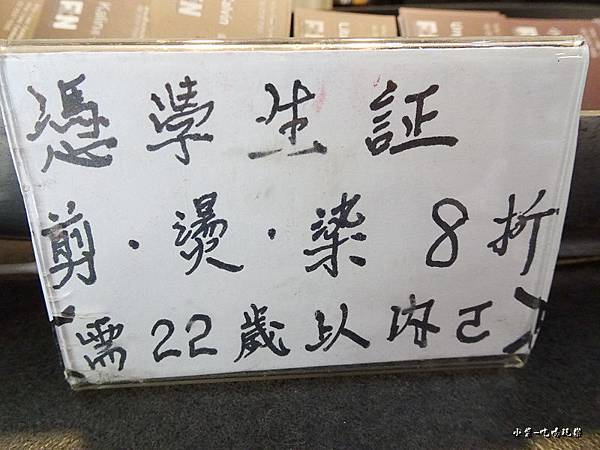 Kaline
F·N
F·N
憑學生証
剪·燙·染 8折
(需22歲以內)
小紫-吃喝玩樂